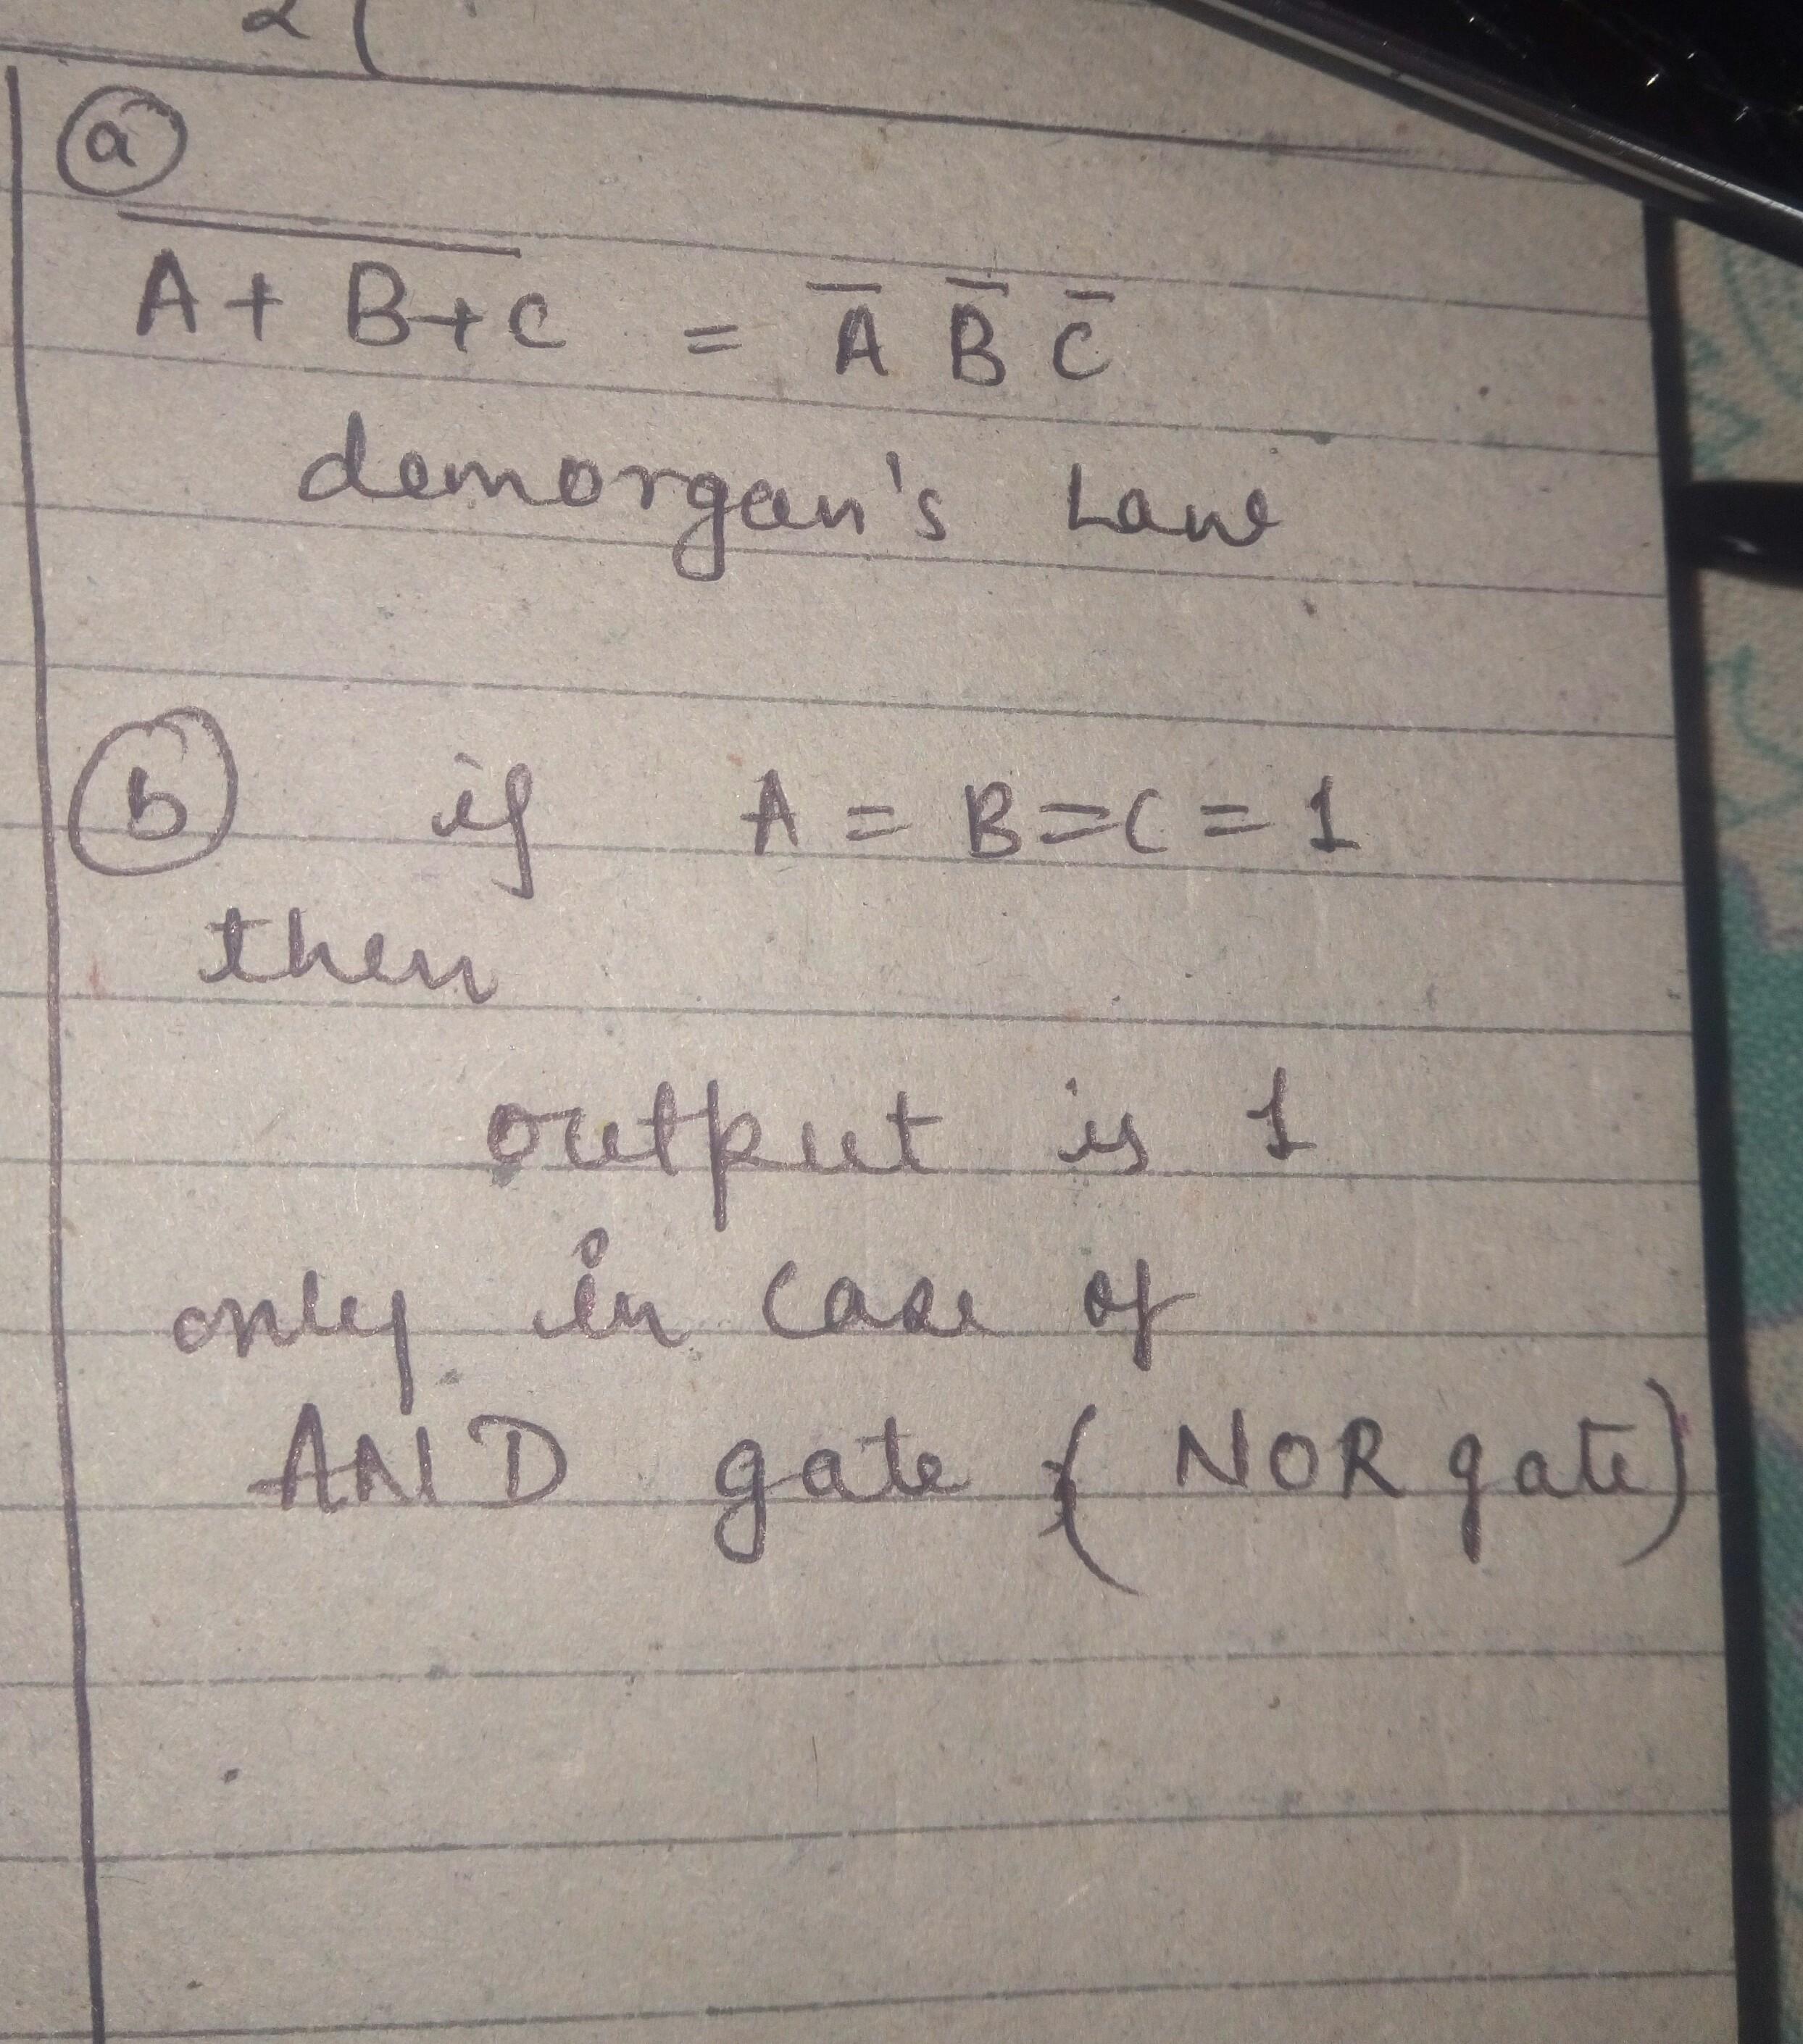 2 (
a
A + B + C = A̅ B̅ C̅
demorgan's Law
b if A = B = C = 1
then
output is 1
only in case of
AND gate ( NOR gate)